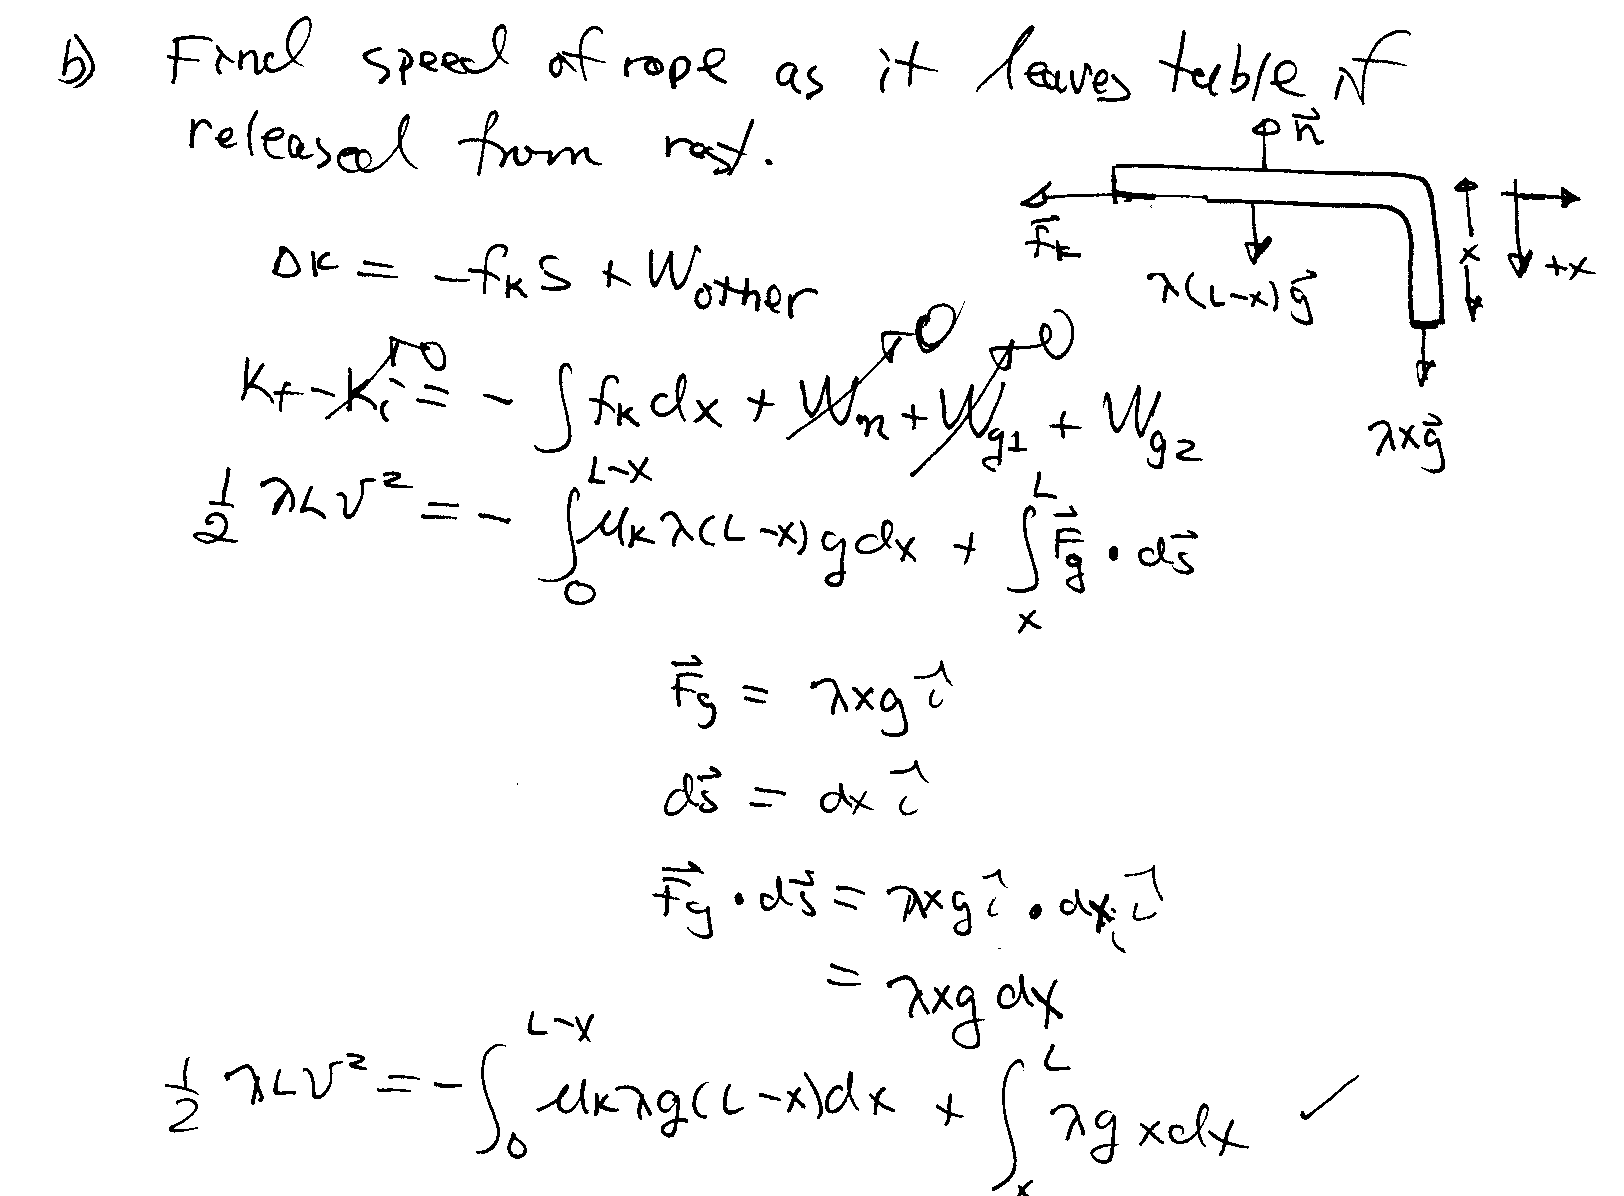 b) Find speed of rope as it leaves table if
released from rest.
n⃗
f⃗k
λ(L-x)g⃗
x
+x
λxg⃗
ΔK = -fk S + Wother
Kf - Ki = - ∫ fk dx + Wn + Wg1 + Wg2
0
0
0
½ λLv² = - ∫₀^(L-x) μk λ(L-x) g dx + ∫ₓ^L F⃗g • ds⃗
F⃗g = λxg î
ds⃗ = dx î
F⃗g • ds⃗ = λxg î • dx î
= λxg dx
½ λLv² = - ∫₀^(L-x) μk λg(L-x)dx + ∫ₓ^L λg xdx ✓